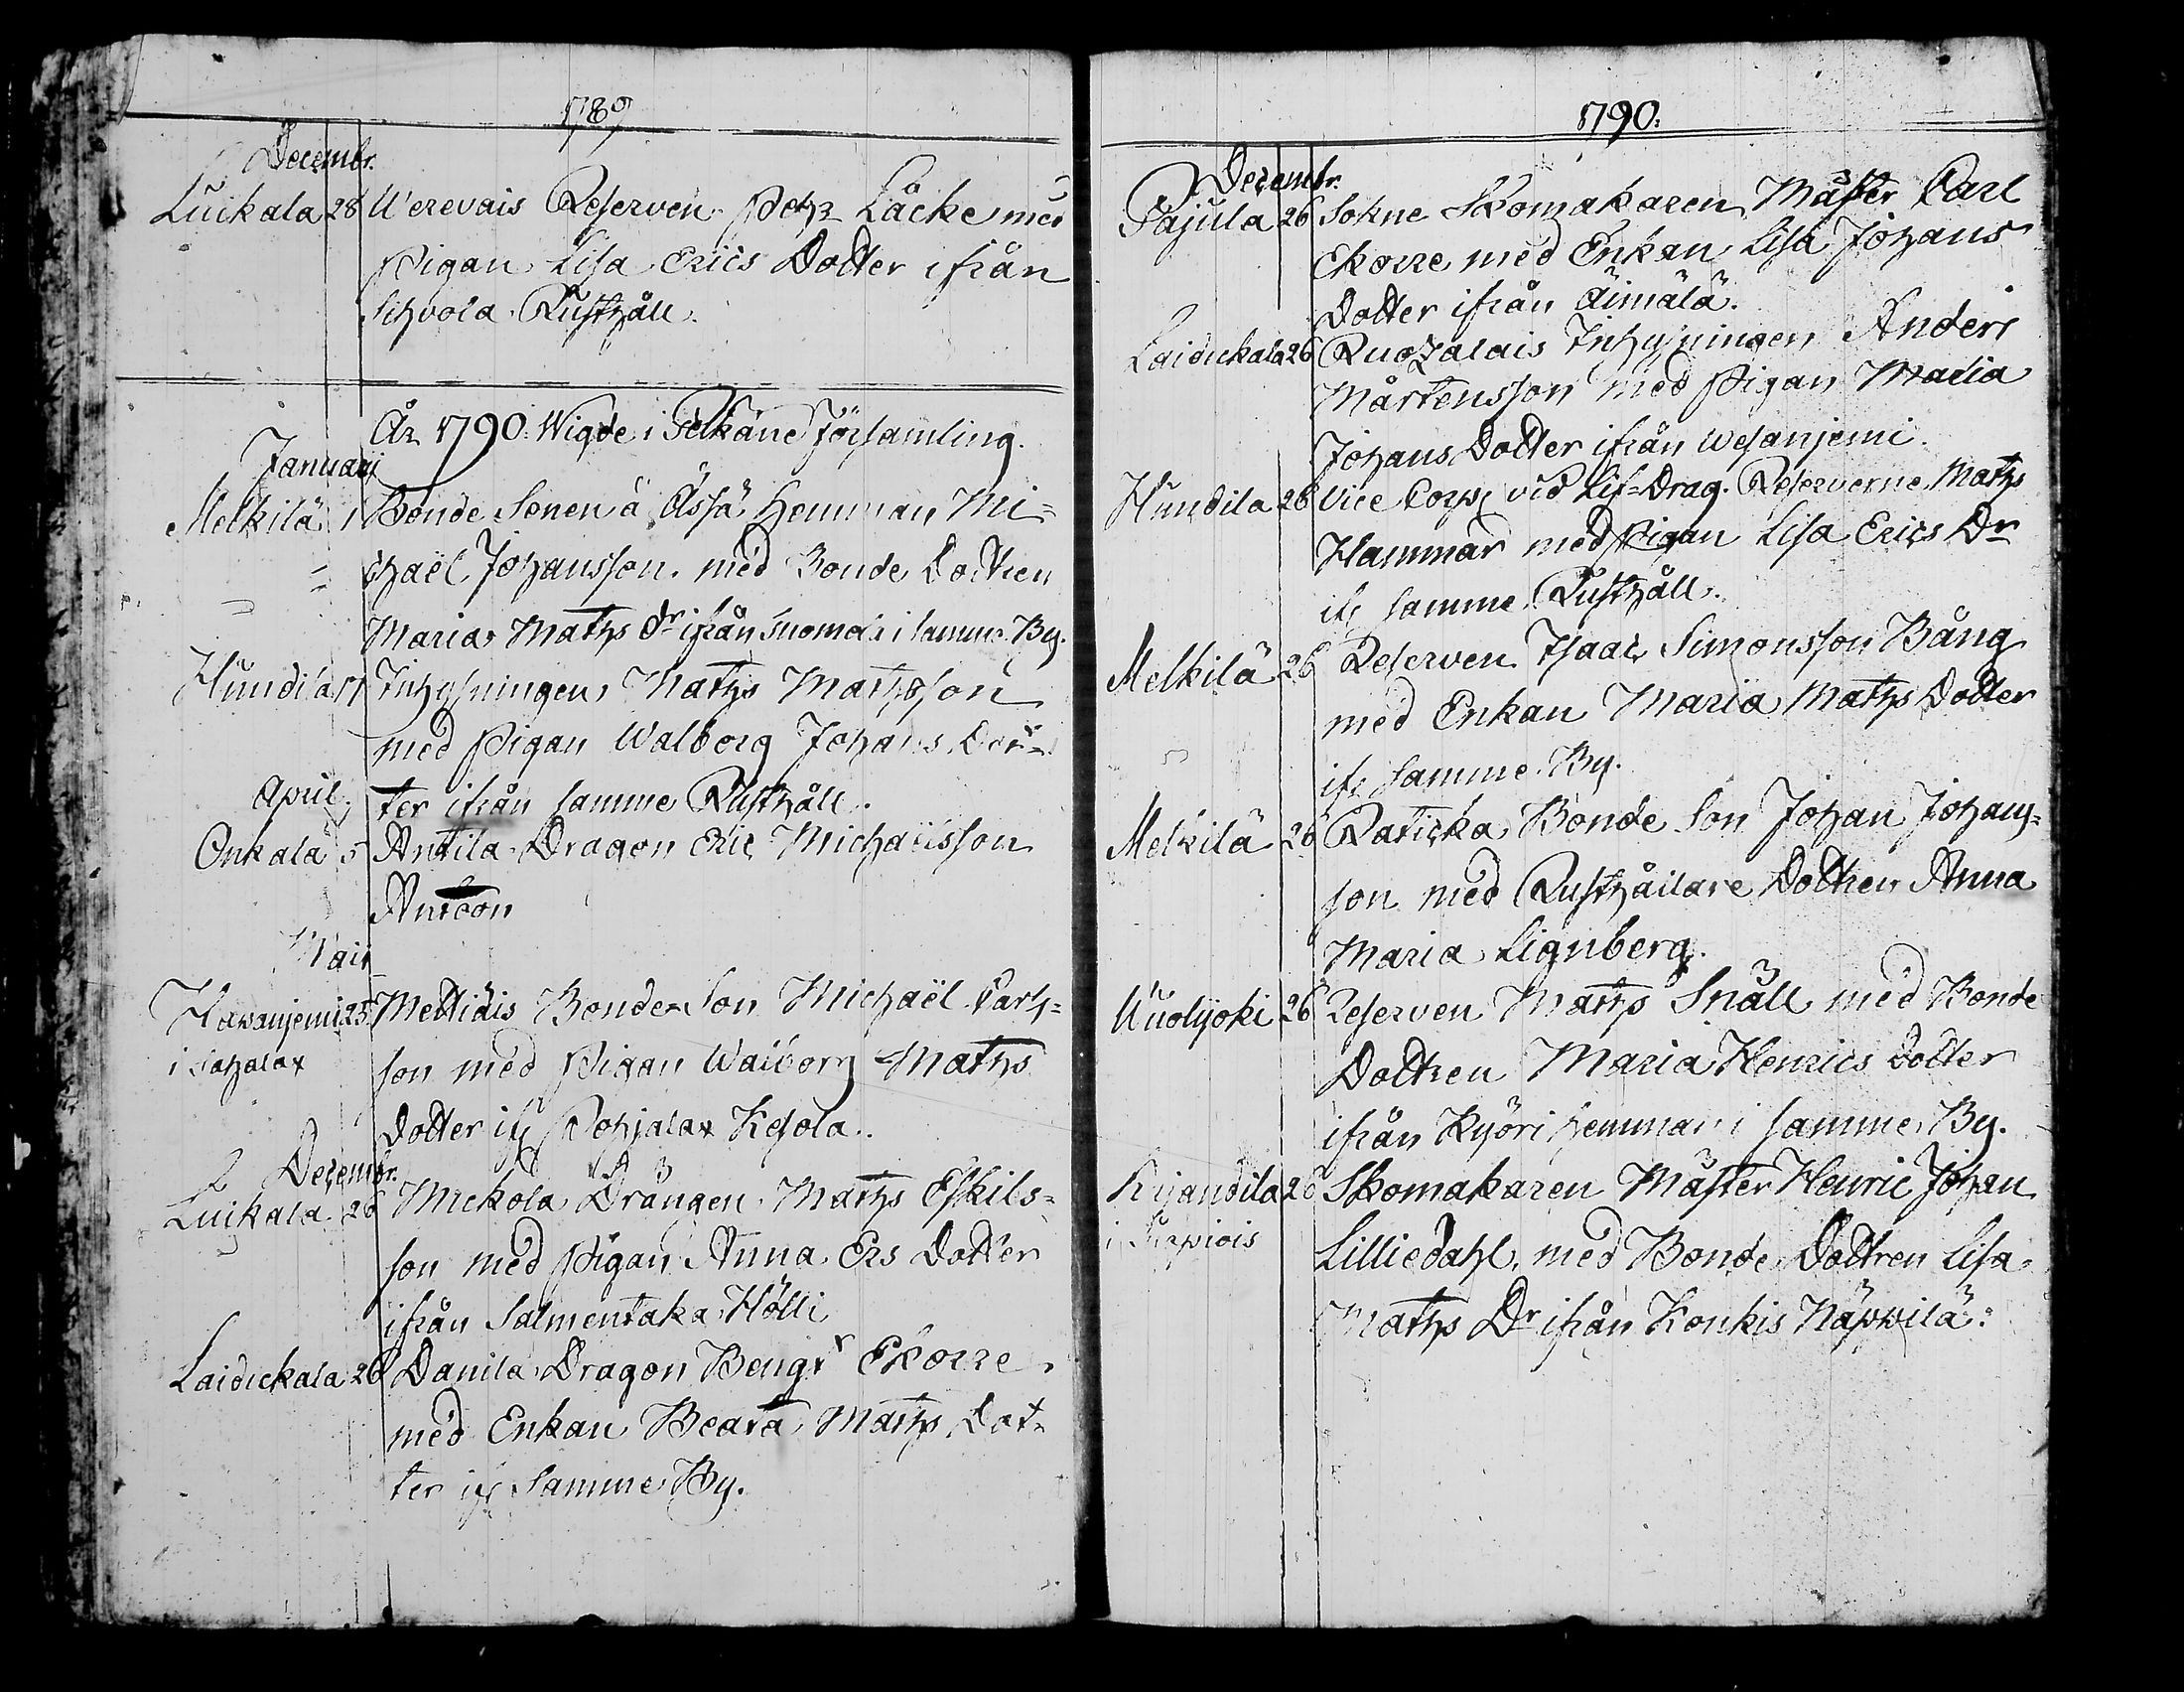 1789
Decembr.
Luikala 28 Werevais Reserven Petr Låcke med
Pigan Lisa Erics Dotter ifrån
Sihvola Rusthåll.
År 1790. Wigde i Pelkäne Församling.
Januarj
Melkilä 1 Bonde Sonen å Ässä Hemman Mi=
chaël Johansson med Bonde Dottren
Maria Maths Dr ifrån Suomela i samme By.
Hundila 17 Inhysningen Maths Mathsson
med Pigan Walborg Johans Dot=
ter ifrån samme Rusthåll.
April
Onkala 5 Antila Dragon Eric Michaëlsson
Anteon
Maii
Hawanjemi 25 Mettidis Bonde Son Michaël Carls=
i Sahalax
son med Pigan Walborg Maths
Dotter ifr Pohjalax Kesola.
Decembr.
Luikala 26 Mickola Drängen Maths Eskils=
son med Pigan Anna Ers Dotter
ifrån Salmentaka Hölli
Laidickala 26 Danila Dragon Bengt Ekorre
med Enkan Beata Maths Dot=
ter ifr Samme By.
1790.
Decembr.
Pajula 26 Sokne Skomakaren Mäster Carl
Ekorre med Enkan Lisa Johans
Dotter ifrån Äimälä.
Laidickala 26 Ruozalais Inhysningen Anders
Mårtensson med Pigan Maria
Johans Dotter ifrån Wesanjemi.
Hundila 26 Vice Corp: vid Lif=Drag. Reserverne Maths
Hammar med Pigan Lisa Erics Dr
ifr samme Rusthåll.
Melkilä 26 Reserven Isaac Simonsson Bång
med Enkan Maria Maths Dotter
ifr Samme By.
Melkilä 26 Raticka Bonde Son Johan Johans=
son med Rusthållare Dottren Anna
Maria Lignberg.
Wuolijoki 26 Reserven Maths Snäll med Bonde
Dottren Maria Henrics Dotter
ifrån Kyöri Hemman i samme By.
Kijandila 26 Skomakaren Mäster Henric Johan
i
Lilliedahl, med Bonde Dottren Lisa
Maths Dr ifrån Konkis Näppilä.